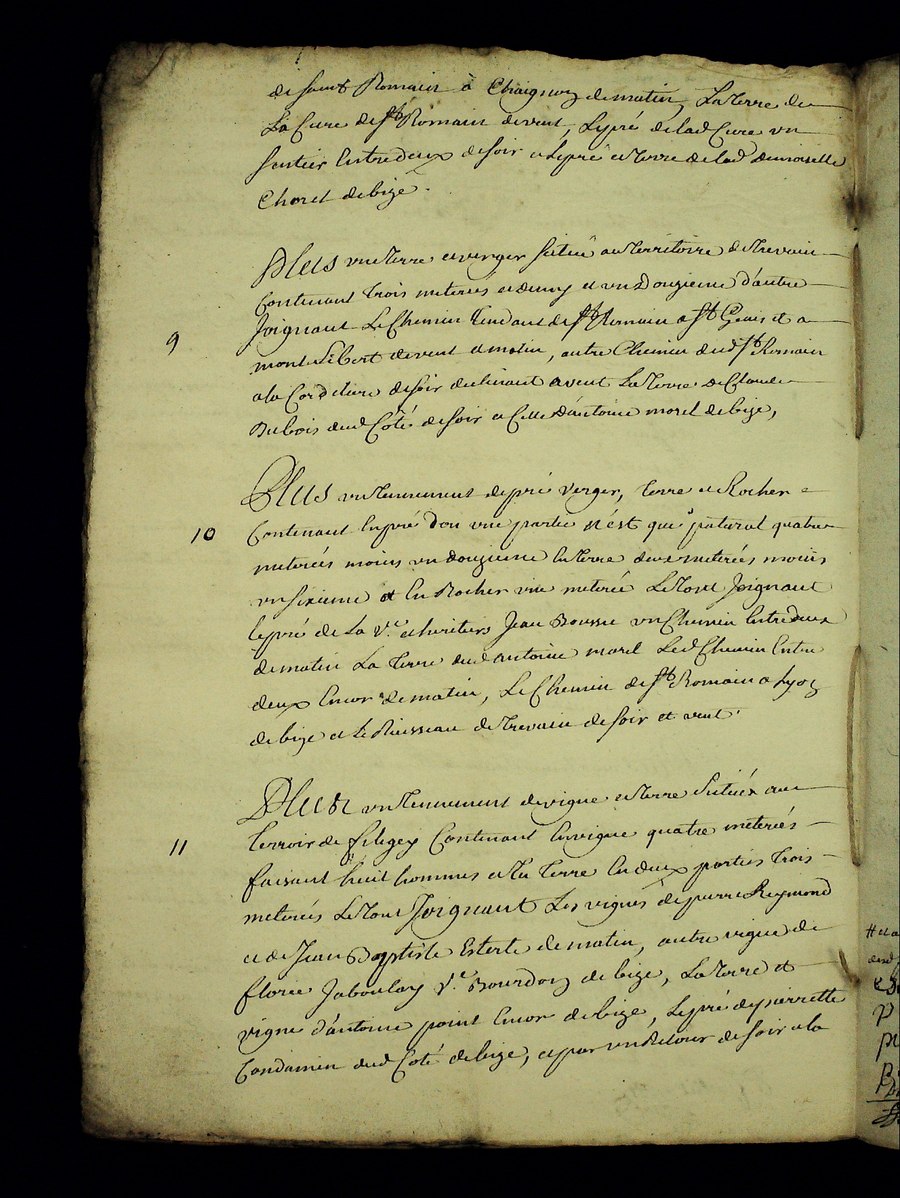 de saint Romain à Chaignon de matin, La terre de
La Cure de St Romain de vent, Le pré de lad Cure un
sentier Entredeux de soir et Le pré et terre de lad demoiselle
Choret de bize.
Plus une terre et verger situé au territoire de trevain
Contenant trois meterés et demy et un Douzieme d'autre
Joignant Le Chemin tendant de St Romain a St Genis et a
mont de vent et matin, autre Chemin dud St Romain
a la Cordeliere de soir declinant a vent La terre de Claude
Dubois dud Coté de soir et Celle d'antoine morel de bize,
9
Plus un tennement de pré Verger, terre et Rocher
Contenant En pré dou une partie n'est que patural quatre
meterés moins un douzieme En terre deux meterés moins
un sixieme et En Rocher une meteré Le tout Joignant
le pré de La Ve et heritiers Jean Boussu un Chemin Entredeux
de matin La terre dud antoine morel Led Chemin Entre
deux Encor de matin, Le Chemin de St Romain a Lyon
de bize et Le Ruisseau de trevain de soir et vent.
10
Plus un tennement de vigne et terre situéx au
terroir de filegey Contenant En vigne quatre meterés
faisant huit hommes et En terre En deux parties trois
meterés Le tout Joignant Les vignes de pierre Reymond
et de Jean Baptiste Esterle de matin, autre vigne de
florie Jaboulay Ve Bourdon de bize, La terre et
vigne d'antoine point Encor de bize, Le pré de pierrette
Condamin dud Coté de bize, et par un Retour de soir a la
11